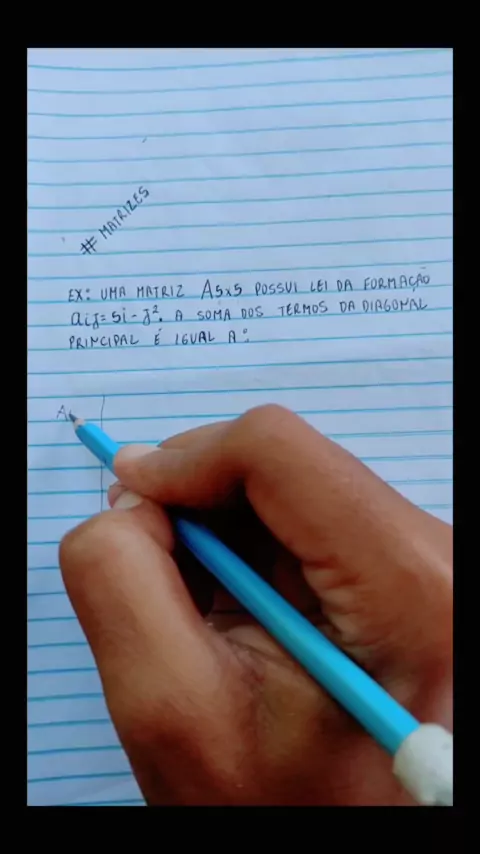 # MATRIZES
EX: UMA MATRIZ A5x5 POSSUI LEI DA FORMAÇÃO
aij= 5i - j². A SOMA DOS TERMOS DA DIAGONAL
PRINCIPAL É IGUAL A:
A